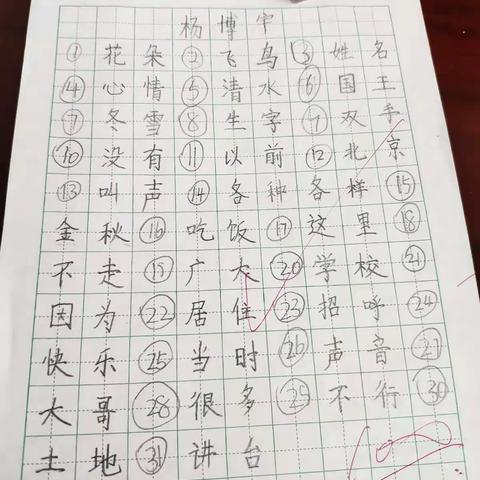 杨博宇
①花朵②飞鸟③姓名
④心情⑤清水⑥国王
⑦冬雪⑧生字⑨双手
⑩没有⑪以前⑫北京
⑬叫声⑭各种各样⑮
金秋⑯吃饭⑰这里⑱
不走⑲广大⑳学校㉑
因为㉒居住㉓招呼㉔
快乐㉕当时㉖声音㉗
大哥㉘很多㉙不行㉚
土地㉛讲台
100